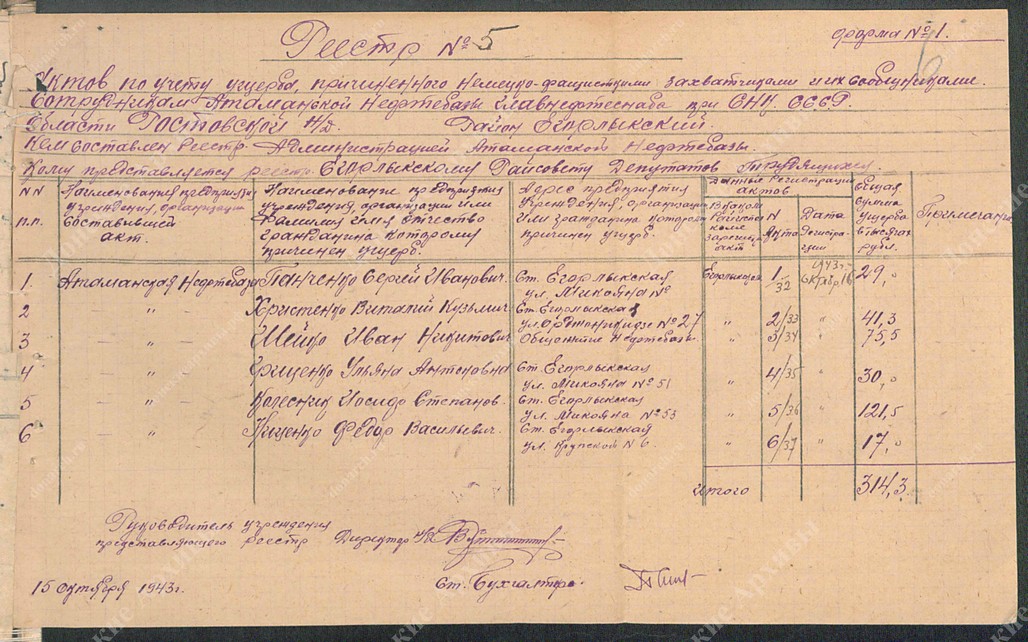 форма № 1.
Реестр № 5
Актов по учету ущерба, причиненного немецко-фашисткими захватчиками и их сообщниками.
Сотрудникам Атаманской Нефтебазы Главнефтеснаба при СНК СССР.
Области Ростовской н/д. Район Егорлыкский.
Кем составлен реестр. Администрацией Атаманской Нефтебазы.
Кому представляется реестр. Егорлыкскому Райсовету Депутатов Трудящихся.
NN п.п.
Наименования предприяз. учреждения, организации составившей акт.
Наименование предприятия учреждения организации или Фамилия имя отчество гражданина которому причинен ущерб.
Адрес предприятия учреждения, организации или гражданина которому причинен ущерб.
Данные Регистрации актов
В каком сельсовете зарегист. акт
N Акта
Дата Регистрации
Общая сумма ущерба в тысячах рубл.
Примечание
1 Атаманская Нефтебаза Панченко Сергей Иванович. Ст. Егорлыкская ул. Микояна № Егорлыкск 1/32 1943 г. октябр. 16 29,"
2 " Христенко Виталий Кузьмич. Ст. Егорлыкская ул. Орджоникидзе № 27 " 2/33 " 41,3
3 " Шейко Иван Никитович Общежитие Нефтебазы. " 3/34 " 75,5
4 " Гриценко Ульяна Антоновна Ст. Егорлыкская ул. Микояна № 51 " 4/35 " 30,"
5 " Колесник Иосиф Степанов. Ст. Егорлыкская ул. Микояна № 53 " 5/36 " 121,5
6 " Кищенко Федор Васильевич. Ст. Егорлыкская ул. Крупской N 6. " 6/37 " 17,"
Итого 314,3.
Руководитель учреждения
представляющего реестр Директор НБ
15 октября 1943 г. Ст. Бухгалтер